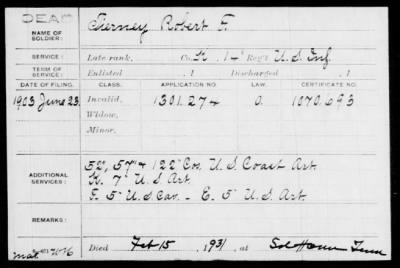 DEAD
NAME OF SOLDIER: Tierney Robert F.
SERVICE: Late rank, Co. K 14" Reg't U.S. Inf.
TERM OF SERVICE: Enlisted , 1 Discharged , 1
DATE OF FILING. CLASS. APPLICATION NO. LAW. CERTIFICATE NO.
1903 June 23 Invalid, 1301.274 O. 1070.693
Widow,
Minor,
ADDITIONAL SERVICES: 52", 57" & 122" Cos. U.S. Coast Art.
K. 7" U.S. Art.
F. 5" U.S. Cav. - E. 5" U.S. Art.
REMARKS:
Died Feb 15, 1931, at Sol Home Tenn